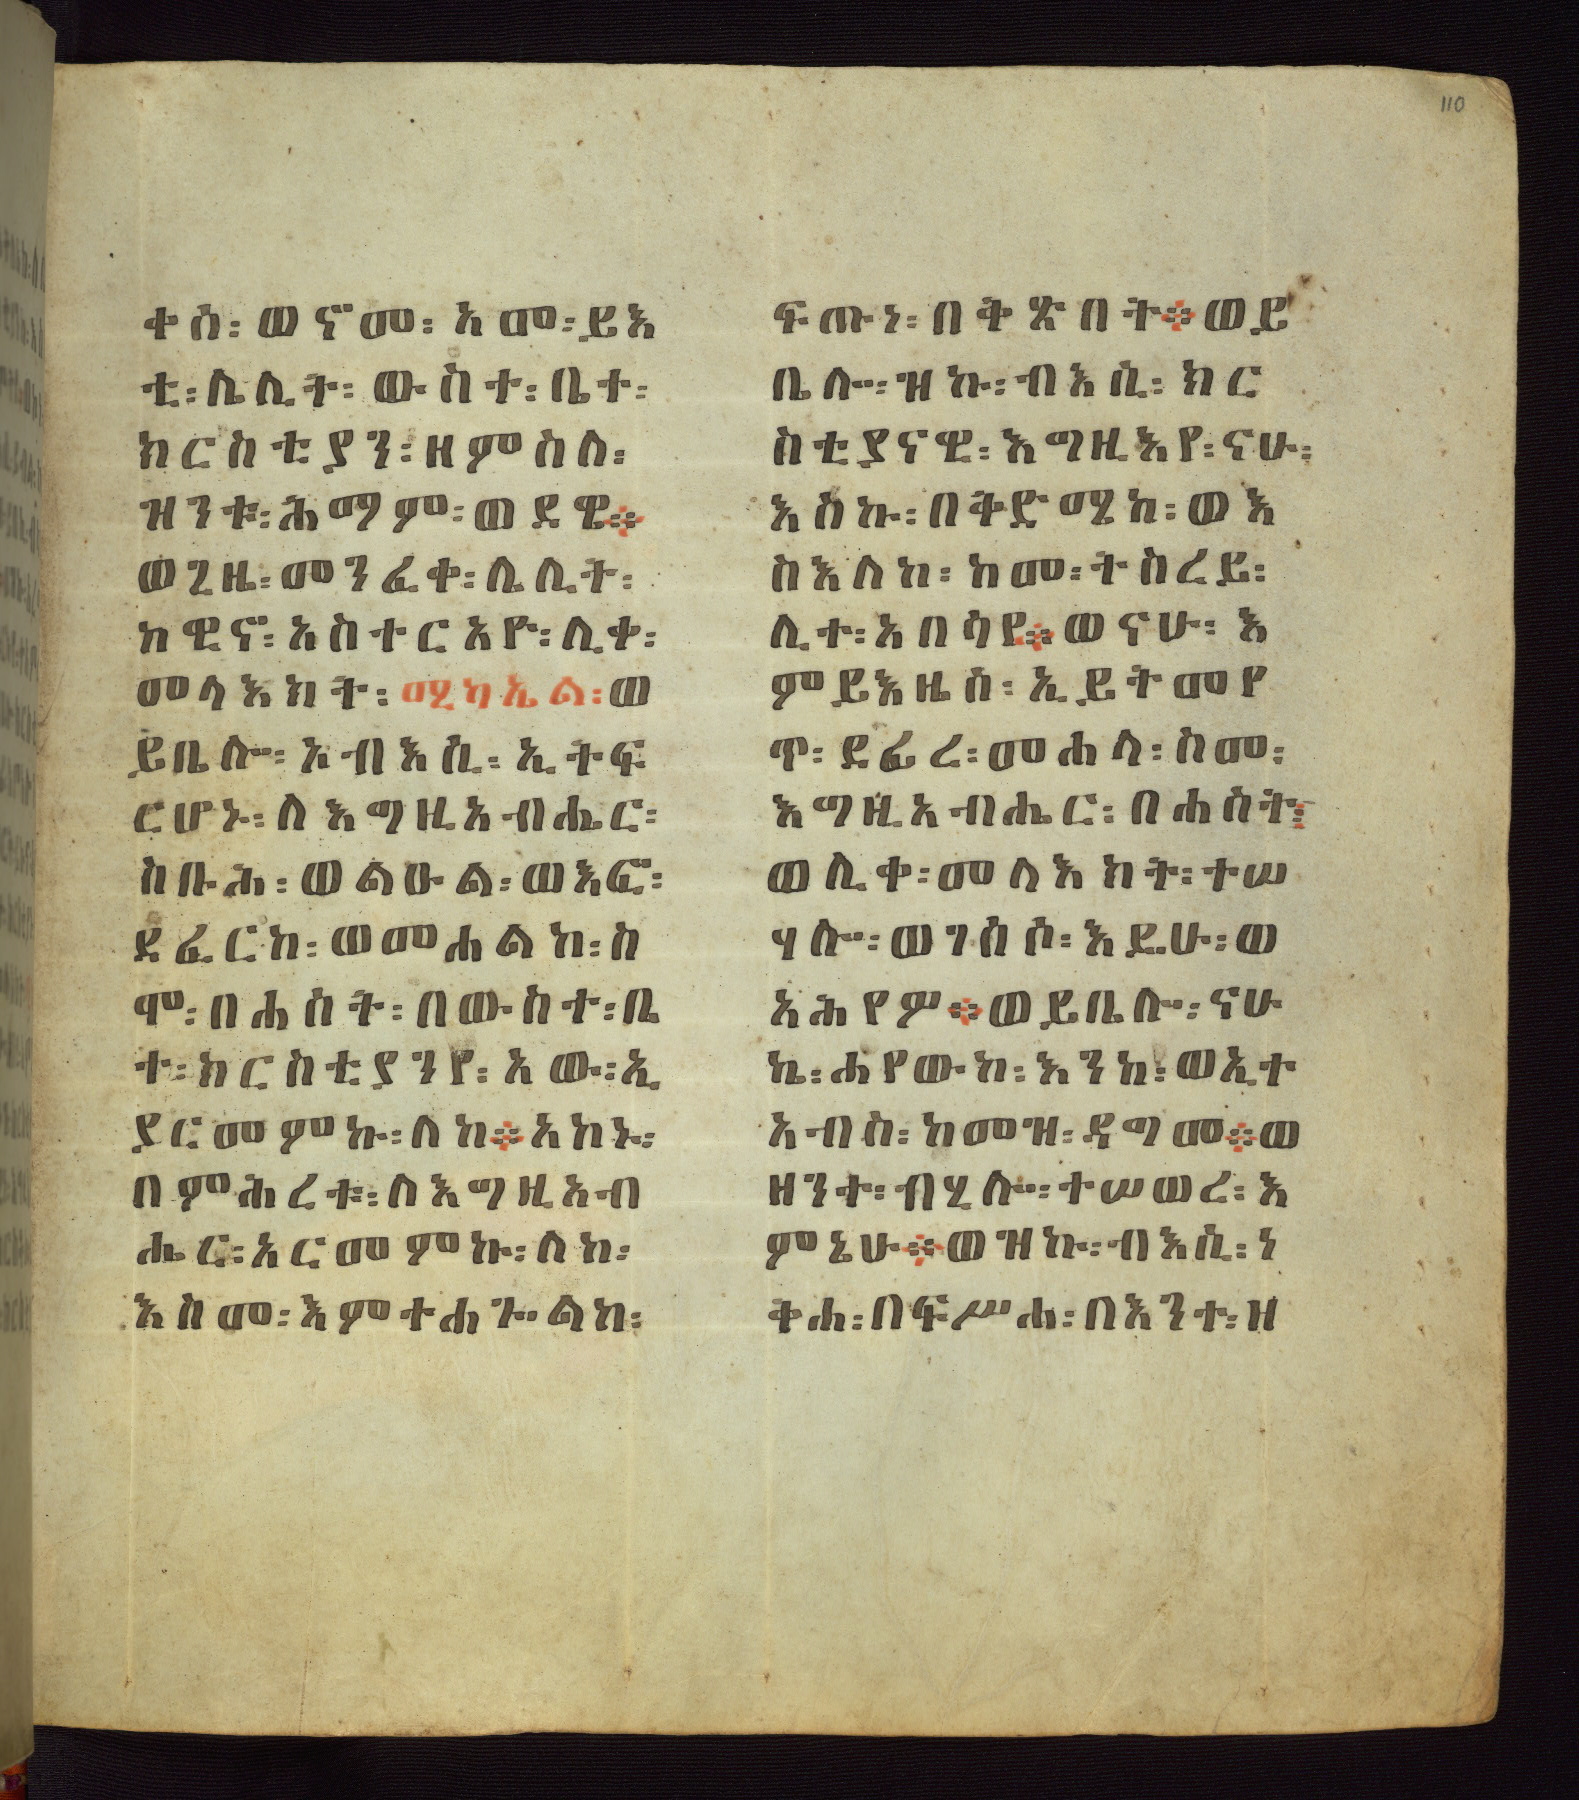 110
ቀሰ፡ ወኖመ፡ አመ፡ ይእ
ቲ፡ ሌሊት፡ ውስተ፡ ቤተ፡
ክርስቲያን፡ ዘምስለ፡
ዝንቱ፡ ሕማም፡ ወደዌ፨
ወጊዜ፡ መንፈቀ፡ ሌሊት፡
ከዊኖ፡ አስተርአዮ፡ ሊቀ፡
መላእክት፡ ሚካኤል፡ ወ
ይቤሎ፡ አብእሲ፡ ኢትፍ
ርሆኑ፡ ለእግዚአብሔር፡
ስቡሕ፡ ወልዑል፡ ወእፎ፡
ደፈርከ፡ ወመሐልከ፡ ስ
ሞ፡ በሐሰት፡ በውስተ፡ ቤ
ተ፡ ክርስቲያንየ፡ አው፡ ኢ
ያርመምኩ፡ ለከ፨ አከኑ፡
በምሕረቱ፡ ለእግዚአብ
ሔር፡ አርመምኩ፡ ለከ፡
እስመ፡ እምተሐጐልከ፡
ፍጡነ፡ በቅጽበት፨ ወይ
ቤሎ፡ ዝኩ፡ ብእሲ፡ ክር
ስቲያናዊ፡ እግዚእየ፡ ናሁ፡
እስኩ፡ በቅድሜከ፡ ወእ
ስእለከ፡ ከመ፡ ትስረይ፡
ሊተ፡ አበሳየ፨ ወናሁ፡ እ
ምይእዜሰ፡ ኢይትመየ
ጥ፡ ደፊረ፡ መሐላ፡ ስመ፡
እግዚአብሔር፡ በሐሰት፡
ወሊቀ፡ መላእክት፡ ተሠ
ሃሎ፡ ወገሰሶ፡ እዴሁ፡ ወ
አሕየዎ፨ ወይቤሎ፡ ናሁ
ኬ፡ ሐየውከ፡ እንከ፡ ወኢተ
አብስ፡ ከመዝ፡ ዳግመ፨ ወ
ዘንተ፡ ብሂሎ፡ ተሠወረ፡ እ
ምኔሁ፨ ወዝኩ፡ ብእሲ፡ ነ
ቅሐ፡ በፍሥሐ፡ በእንተ፡ ዝ